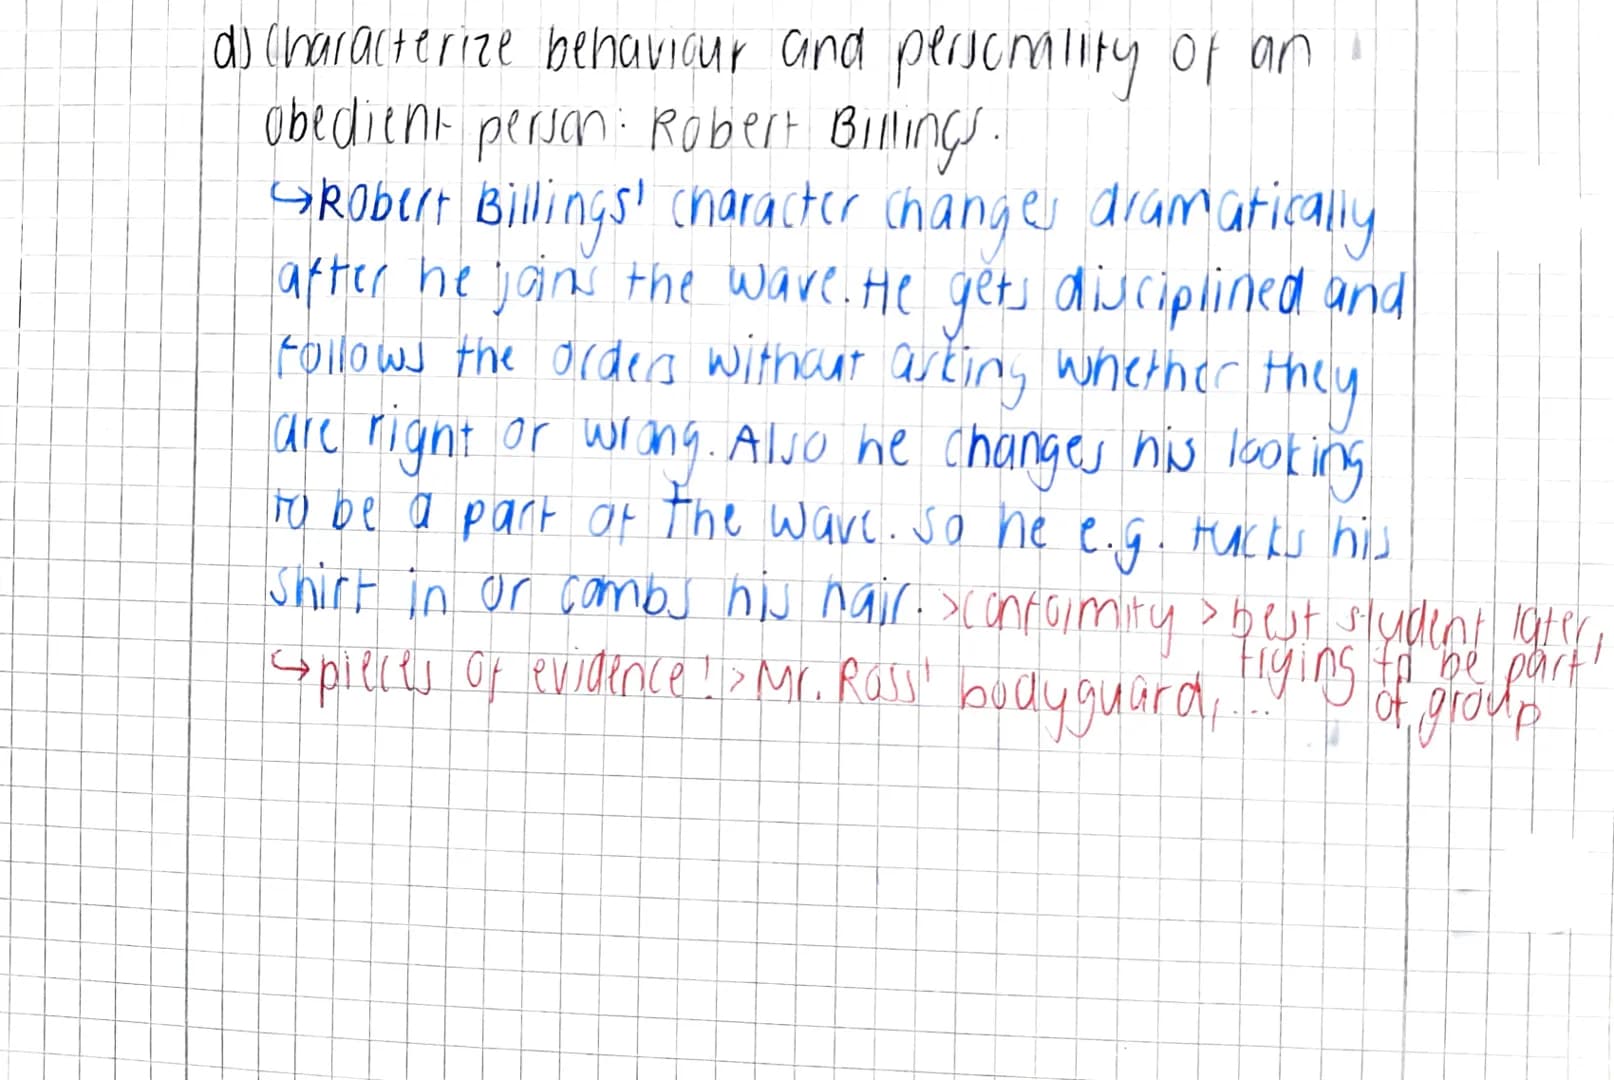 d) Characterize behaviour and personality of an
obedient person: Robert Billings.
↪Robert Billings' character changes dramatically
after he joins the wave. He gets disciplined and
follows the orders without asking whether they
are right or wrong. Also he changes his looking
to be a part of the wave. So he e.g. tucks his
shirt in or combs his hair. >conformity >best student later,
trying to be part
of group
↪pieces of evidence! >Mr. Ross' bodyguard, ...